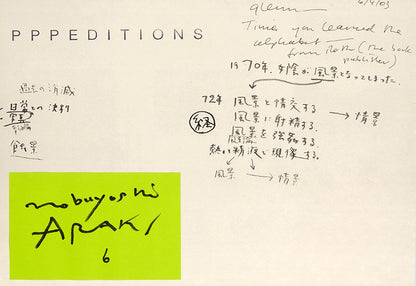 6/4/03
glenn -
PPPEDITIONS
Time you learned the
alphabet
from Roth (the book
publisher)
1970年、女陰が風景となってしまった。
過去の消滅
日常との決別
72年 風景と情交する。
風景に射精する。 → 情景
風景を強姦する。
熱い精液で現像する。
風景 → 情景
蝕景
nobuyoshi
ARAKI
6